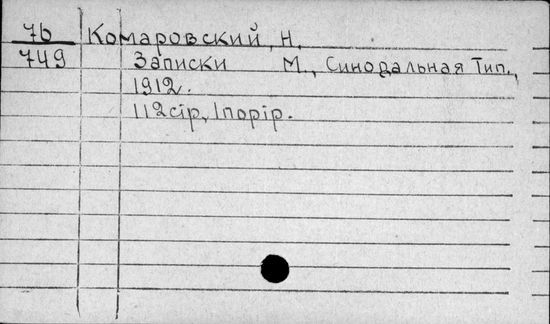 7b Комаровский, Н.
749 Записки М., Синодальная Тип.,
1912.
112 сір, 1 порір.